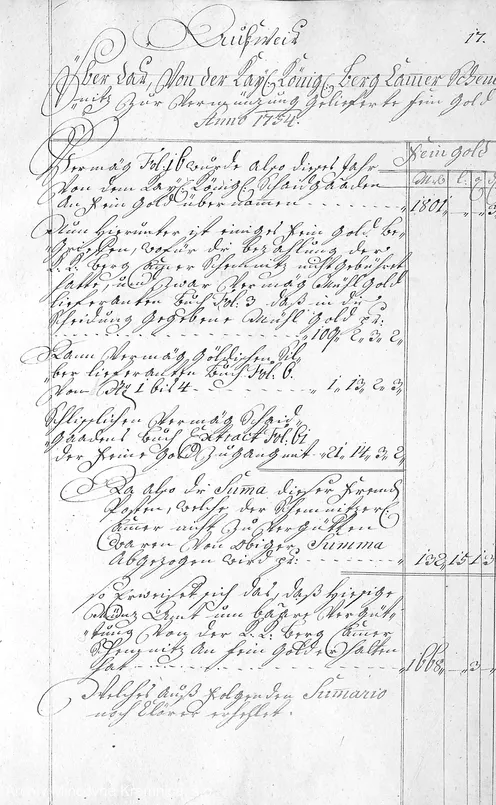 Außweiß
17.
Über das, Von der Kay: König: Berg Camer Schem
nitz zur Vermünzung gelieferte fein Gold
Anno 1754.
fein Gold
Vermög Fol: 16 wurde also dieses Jahr
Von dem Kay: König: Schaidgaaden
An fein Gold übernomen
1801
Nun hierunter ist einiges fein Gold be-
griffen, wofür die bezahlung der
K. K. Berg Camer Schemnitz nicht gebühret
hatte, und zwar Vermög Mühl Gold
lieferanten Buch Fol. 3. daß in die
Scheidung gegebene Mühl Gold pr:
109 2 3 2
Dann Vermög Göldischen Sil-
ber lieferanten Buch Fol. 6.
Von No 1 bis 4
1 13 2 3
Schlüßlichen Vermög Schaid-
gaadens Buch Extract Fol. 61
der feine Gold Zugang mit 21 14 3 2
Da also die Suma dieser Fremden
Posten, welche der Schemnitzer
Camer nicht zu Vergütten
waren Von obiger Summa
Abgezogen wird pr:
132 15 1 3
so Erweiset sich das, daß hiesige
Münz Amt um baare Vergüt-
tung Von der K. K. Berg Camer
Schemnitz An fein Gold Erhalten
hat
1668 3
Welches auß folgenden Sumario
noch klärer erhellet.